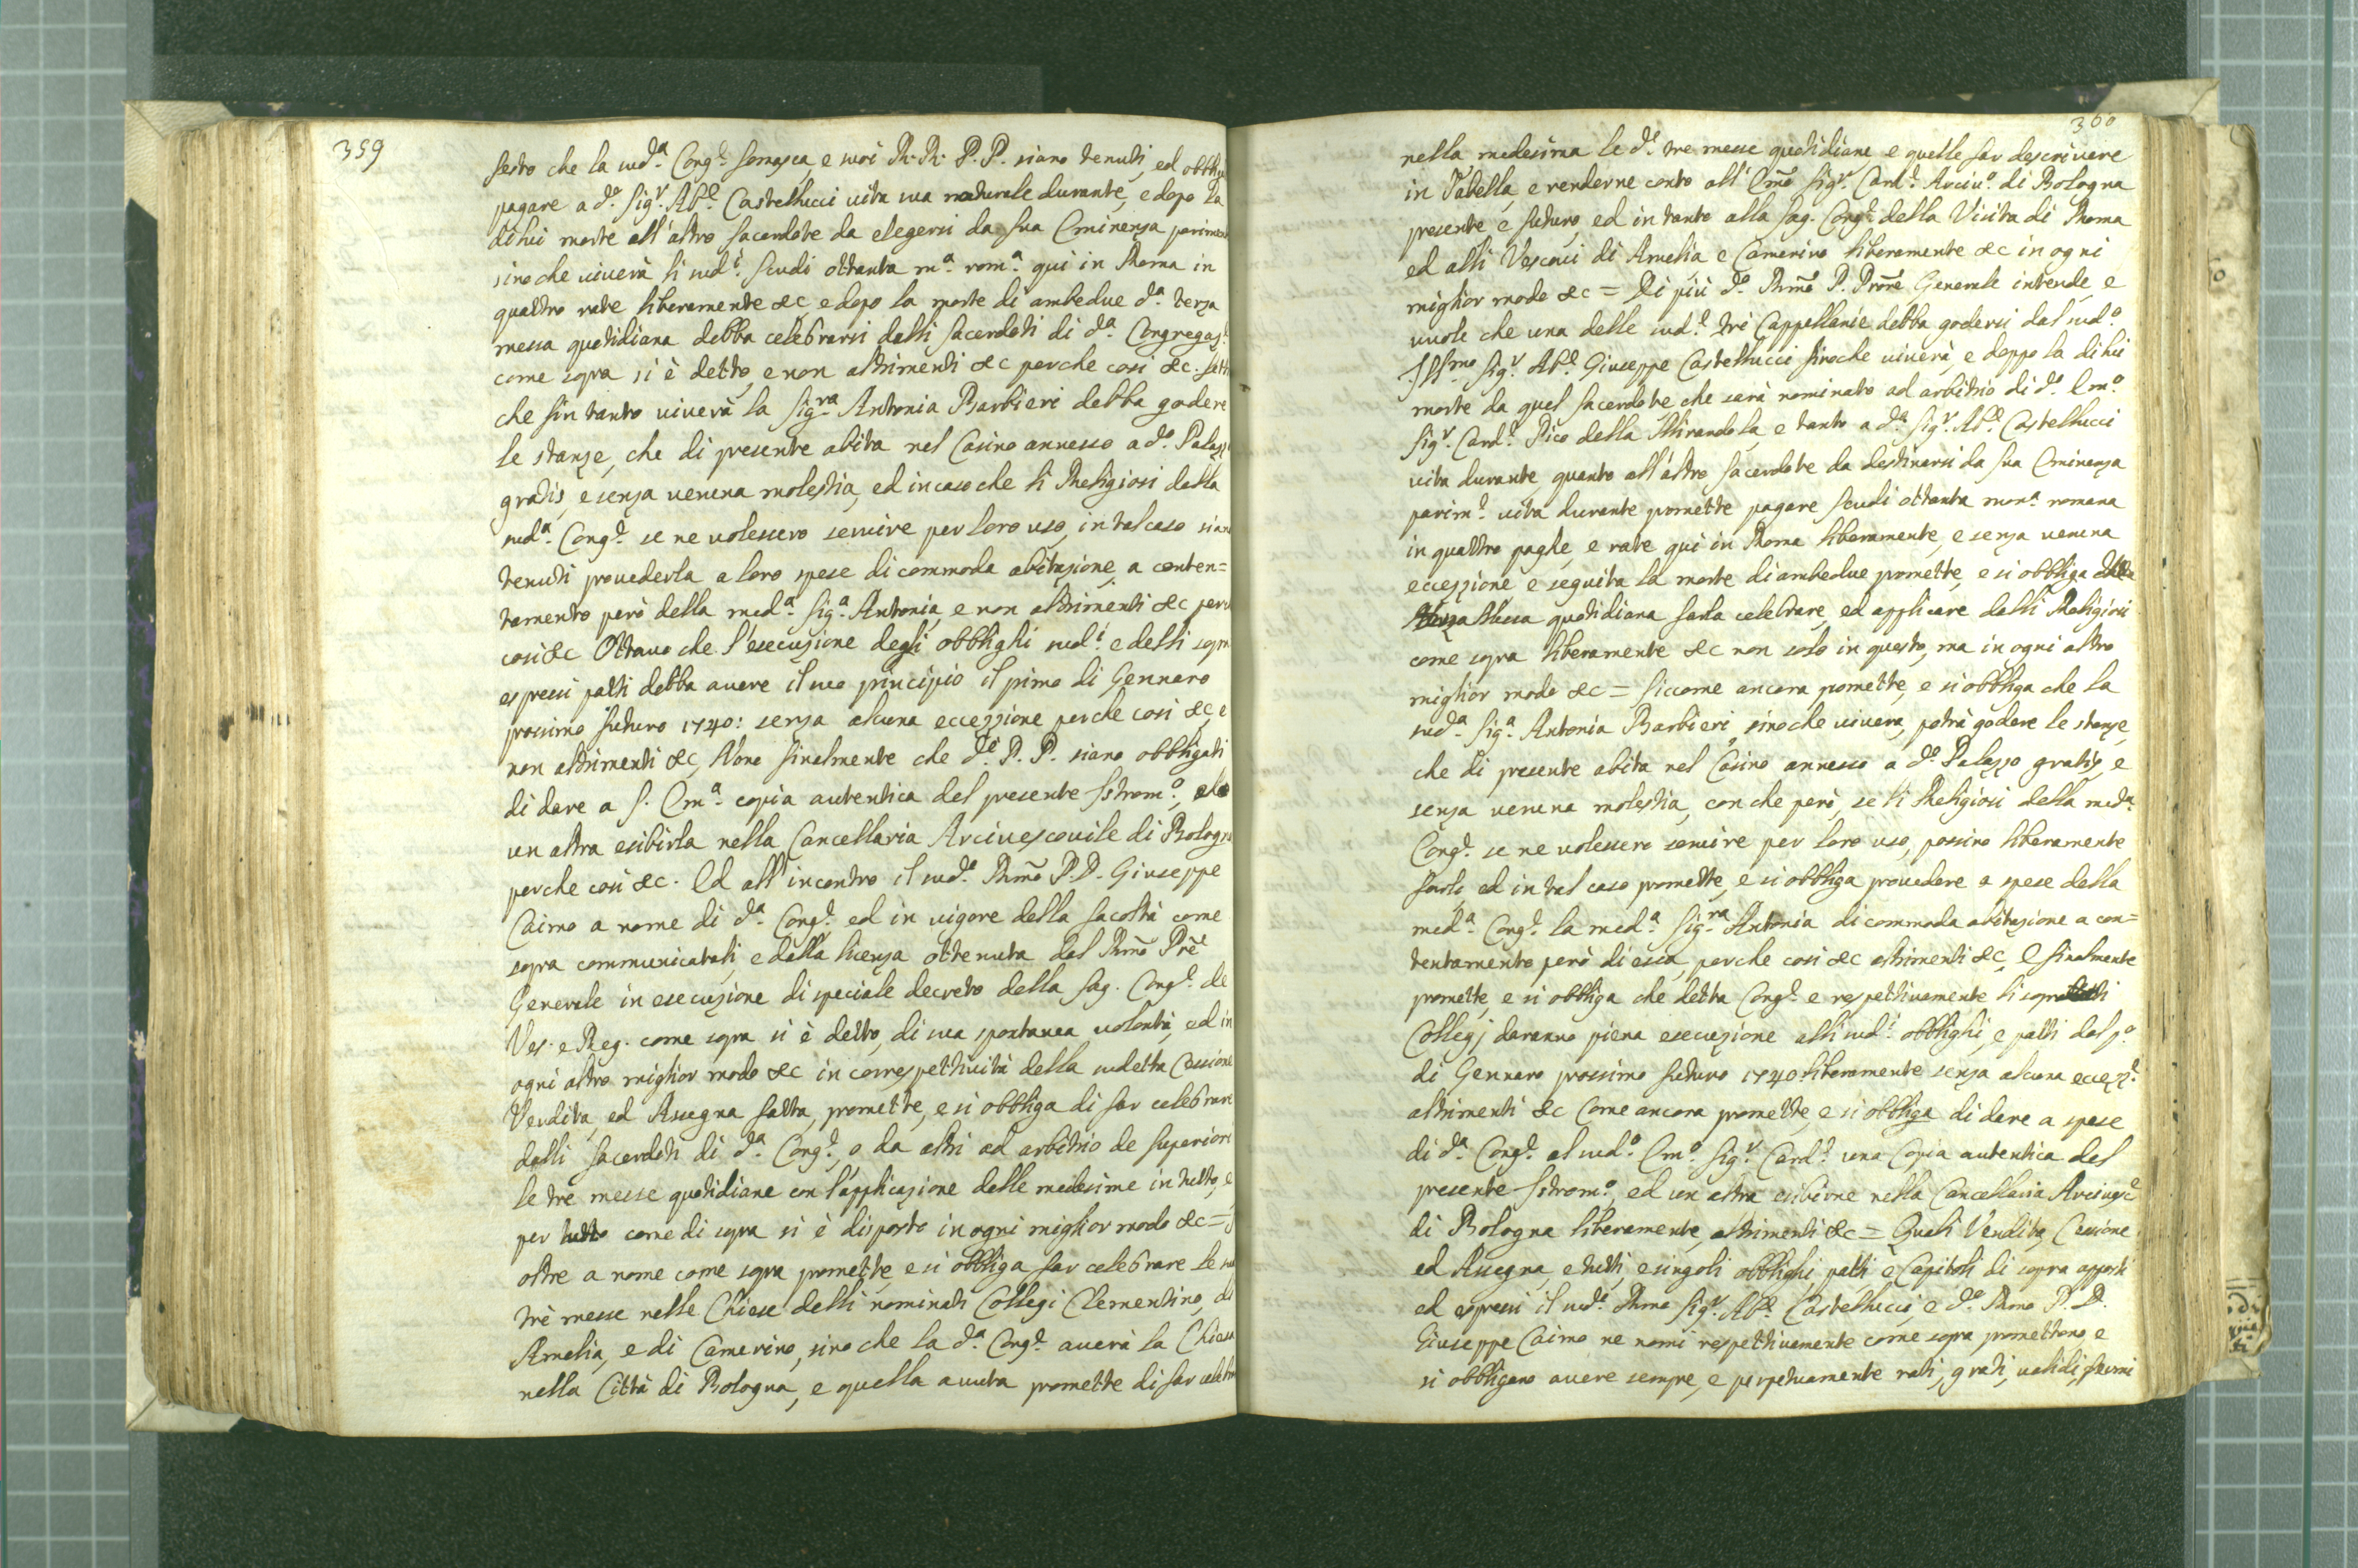 359
sesto che la sud.ª Cong.e Somasca, e suoi R.R. P.P. siano tenuti, ed obblig
pagare a d.º Sig.r Ab.e Castellucci vita sua naturale durante, e dopo la
di lui morte all'altro Sacerdote da elegersi da Sua Eminenza parimen
sino che viverà li sud.i Scudi ottanta m.ª rom.ª qui in Roma in
quattro rate liberamente &c, e dopo la morte di ambedue d.ª terza
messa quotidiana debba celebrarsi dalli Sacerdoti di d.ª Congregaz.e
come sopra si è detto, e non altrimenti &c perche cosi &c. Sett
che sin tanto viverà la Sig.ra Antonia Barbieri debba godere
le stanze, che di presente abita nel Casino annesso a d.º Palazz
gratis, e senza veruna molestia, ed in caso che li Religiosi della
sud.ª Cong.e se ne volessero servire per loro uso, in tal caso sian
tenuti provederla a loro spese di commoda abitazione, a conten=
tamento però della med.ª Sig.ª Antonia, e non altrimenti &c per
cosi &c Ottavo che l'esecuzione degli obblighi sud.i e delli sopra
espressi patti debba avere il suo principio il pimo di Gennaro
prossimo futuro 1740: senza alcuna eccezzione perche cosi &c, e
non altrimenti &c, Nono finalmente che d.i P.P. siano obbligati
di dare a S. Em.ª copia autentica del presente Istrom.º, ed
un altra esibirla nella Cancellaria Arcivescovile di Bologna
perche cosi &c. Ed all'incontro il sud.º Rmõ P.D. Giuseppe
Caimo a nome di d.ª Cong.e ed in vigore della facoltà come
sopra communicatali, e dalla licenza ottenuta dal Rmõ Prẽ
Generale in esecuzione di speciale decreto della Sag. Cong.e de
Ves. e Reg. come sopra si è detto, di sua spontanea volontà, ed in
ogni altro miglior modo &c in correspettività della sudetta Cessione
Vendita, ed Assegna fatta, promette, e si obbliga di far celebrare
dalli Sacerdoti di d.ª Cong.e, o da altri ad arbitrio de Superiori
le tre messe quotidiane con l'applicazione delle medesime in tutto, e
per tutto come di sopra si è disposto in ogni miglior modo &c=
oltre a nome come sopra promette, e si obbliga far celebrare le sud
trè messe nelle Chiese delli nominati Collegi Clementino, di
Amelia, e di Camerino, sino che la d.ª Cong.e averà la Chiesa
nella Città di Bologna, e quella avuta promette di far celebra
360
nella medesima le d.e tre messe quotidiane e quelle far descrivere
in Tabella, e renderne conto all'Emõ Sig.r Card.e Arciv.º di Bologna
presente e futuro, ed in tanto alla Sag. Cong.e della Visita di Roma
ed alli Vescovi di Amelia e Camerino liberamente &c in ogni
miglior modo &c = Di più d.º Rmõ P. Prorẽ Generale intende, e
vuole che una delle sud.e trè Cappellanie debba godersi dal sud.º
Illmo Sig.r Ab.e Giuseppe Castellucci sinche viverà, e doppo la di lui
morte da quel Sacerdote che serà nominato ad arbitrio di d.º Em.º
Sig.r Card.e Pico della Mirandola e tanto a d.º Sig.r Ab.e Castellucci
vita durante quanto all'altro Sacerdote da destinarsi da Sua Eminenza
parim.e vita durante promette pagare Scudi ottanta mon.ª romana
in quattro paghe, e rate qui in Roma liberamente, e senza veruna
eccezzione e seguita la morte di ambedue promette, e si obbliga detta
terza Messa quotidiana farla celebrare, ed applicare dalli Religiosi
come sopra liberamente &c non solo in questo, ma in ogni altro
miglior modo &c = Siccome ancora promette, e si obbliga che la
sud.ª Sig.ª Antonia Barbieri, sinoche vivera, potrà godere le stanze,
che di presente abita nel Casino annesso a d.º Palazzo gratis, e
senza veruna molestia, con che però, se li Religiosi della med.ª
Cong.e se ne volessero servire per loro uso, possino liberamente
farlo, ed in tal caso promette, e si obbliga provedere a spese della
med.ª Cong.e la med.ª Sig.ra Antonia di commoda abitazione a con=
tentamento però di essa, perche cosi &c altrimenti &c, E finalmente
promette, e si obbliga che detta Cong.e e respettivamente li sopradetti
Collegj daranno piena esecuzione alli sud.i obblighi, e patti dal p.º
di Gennaro prossimo futuro 1740: liberamente senza alcuna eccezz.e
altrimenti &c Come ancora promette, e si obbliga di dare a spese
di d.ª Cong.e al sud.º Em.º Sig.r Card.e una Copia autentica del
presente Istrom.º, ed un altra esibirne nella Cancellaria Arcivesc.e
di Bologna liberamente, altrimenti &c = Quali Vendita, Cessione
ed Assegna, e tutti, e singoli obblighi, patti e Capitoli di sopra apposti
ed espressi il sud.º Rmo Sig.r Ab.e Castellucci, e d.º Rmo P.D.
Giuseppe Caimo ne nomi respettivamente come sopra promettono e
si obbligano avere sempre, e perpetuamente rati, grati, validi, fermi